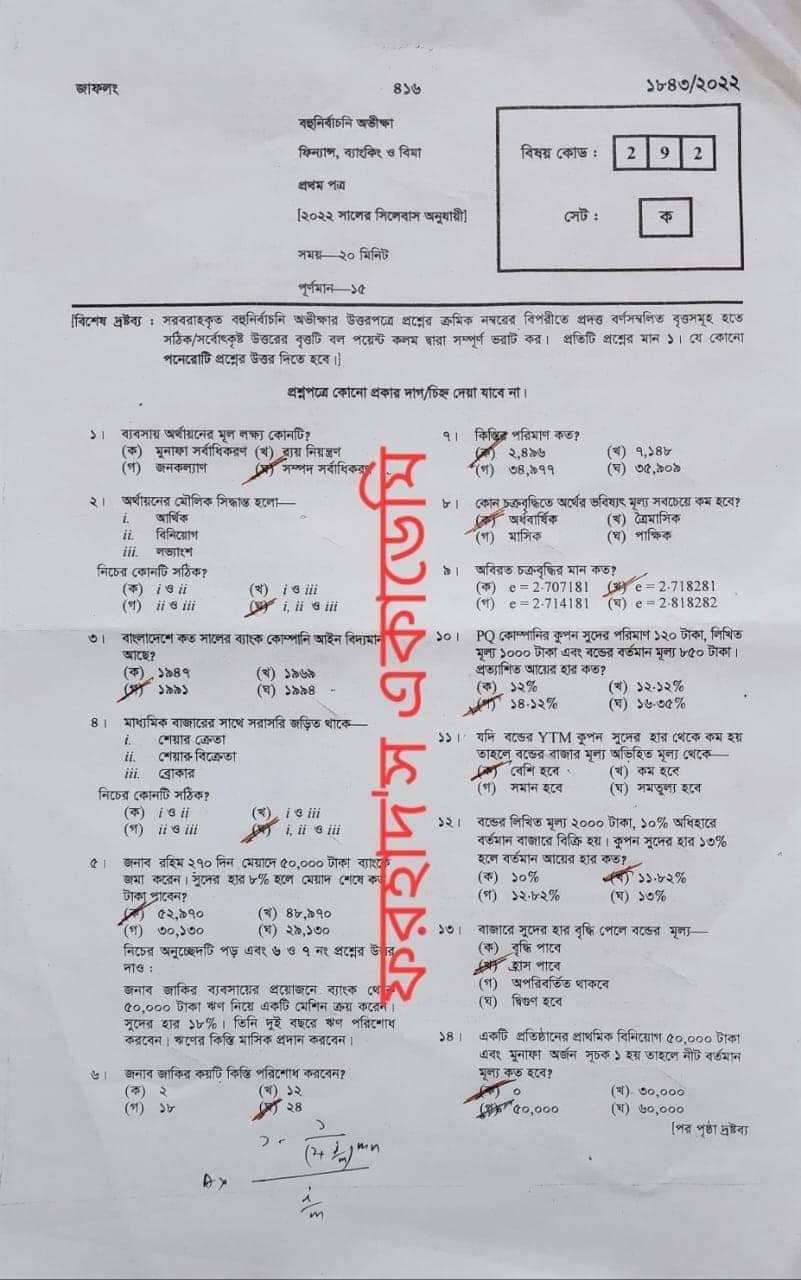 জাফলং
৪১৬
১৮৪৩/২০২২
বহুনির্বাচনি অভীক্ষা
ফিন্যান্স, ব্যাংকিং ও বিমা
প্রথম পত্র
[২০২২ সালের সিলেবাস অনুযায়ী]
সময়—২০ মিনিট
পূর্ণমান—১৫
বিষয় কোড : 2 9 2
সেট : ক
[বিশেষ দ্রষ্টব্য : সরবরাহকৃত বহুনির্বাচনি অভীক্ষার উত্তরপত্রে প্রশ্নের ক্রমিক নম্বরের বিপরীতে প্রদত্ত বর্ণসম্বলিত বৃত্তসমূহ হতে
সঠিক/সর্বোৎকৃষ্ট উত্তরের বৃত্তটি বল পয়েন্ট কলম দ্বারা সম্পূর্ণ ভরাট কর। প্রতিটি প্রশ্নের মান ১। যে কোনো
পনেরোটি প্রশ্নের উত্তর দিতে হবে।]
প্রশ্নপত্রে কোনো প্রকার দাগ/চিহ্ন দেয়া যাবে না।
১। ব্যবসায় অর্থায়নের মূল লক্ষ্য কোনটি?
(ক) মুনাফা সর্বাধিকরণ (খ) ব্যয় নিয়ন্ত্রণ
(গ) জনকল্যাণ (ঘ) সম্পদ সর্বাধিকরণ
২। অর্থায়নের মৌলিক সিদ্ধান্ত হলো—
i. আর্থিক
ii. বিনিয়োগ
iii. লভ্যাংশ
নিচের কোনটি সঠিক?
(ক) i ও ii (খ) i ও iii
(গ) ii ও iii (ঘ) i, ii ও iii
৩। বাংলাদেশে কত সালের ব্যাংক কোম্পানি আইন বিদ্যমান
আছে?
(ক) ১৯৪৭ (খ) ১৯৬৯
(গ) ১৯৯১ (ঘ) ১৯৯৪
৪। মাধ্যমিক বাজারের সাথে সরাসরি জড়িত থাকে—
i. শেয়ার ক্রেতা
ii. শেয়ার বিক্রেতা
iii. ব্রোকার
নিচের কোনটি সঠিক?
(ক) i ও ii (খ) i ও iii
(গ) ii ও iii (ঘ) i, ii ও iii
৫। জনাব রহিম ২৭০ দিন মেয়াদে ৫০,০০০ টাকা ব্যাংকে
জমা করেন। সুদের হার ৮% হলে মেয়াদ শেষে কত
টাকা পাবেন?
(ক) ৫২,৯৭০ (খ) ৪৮,৯৭০
(গ) ৩০,১৩০ (ঘ) ২৯,১৩০
নিচের অনুচ্ছেদটি পড় এবং ৬ ও ৭ নং প্রশ্নের উত্তর
দাও :
জনাব জাকির ব্যবসায়ের প্রয়োজনে ব্যাংক থেকে
৫০,০০০ টাকা ঋণ নিয়ে একটি মেশিন ক্রয় করেন।
সুদের হার ১৮%। তিনি দুই বছরে ঋণ পরিশোধ
করবেন। ঋণের কিস্তি মাসিক প্রদান করবেন।
৬। জনাব জাকির কয়টি কিস্তি পরিশোধ করবেন?
(ক) ২ (খ) ১২
(গ) ১৮ (ঘ) ২৪
৭। কিস্তির পরিমাণ কত?
(ক) ২,৪৯৬ (খ) ৭,১৪৮
(গ) ৩৪,৯৭৭ (ঘ) ৩৫,৯০৯
৮। কোন চক্রবৃদ্ধিতে অর্থের ভবিষ্যৎ মূল্য সবচেয়ে কম হবে?
(ক) অর্ধবার্ষিক (খ) ত্রৈমাসিক
(গ) মাসিক (ঘ) পাক্ষিক
৯। অবিরত চক্রবৃদ্ধির মান কত?
(ক) e = 2·707181 (খ) e = 2·718281
(গ) e = 2·714181 (ঘ) e = 2·818282
১০। PQ কোম্পানির কুপন সুদের পরিমাণ ১২০ টাকা, লিখিত
মূল্য ১০০০ টাকা এবং বন্ডের বর্তমান মূল্য ৮৫০ টাকা।
প্রত্যাশিত আয়ের হার কত?
(ক) ১২% (খ) ১২·১২%
(গ) ১৪·১২% (ঘ) ১৬·৩৫%
১১। যদি বন্ডের YTM কুপন সুদের হার থেকে কম হয়
তাহলে বন্ডের বাজার মূল্য অভিহিত মূল্য থেকে—
(ক) বেশি হবে (খ) কম হবে
(গ) সমান হবে (ঘ) সমতুল্য হবে
১২। বন্ডের লিখিত মূল্য ২০০০ টাকা, ১০% অধিহারে
বর্তমান বাজারে বিক্রি হয়। কুপন সুদের হার ১৩%
হলে বর্তমান আয়ের হার কত?
(ক) ১০% (খ) ১১·৮২%
(গ) ১২·৮২% (ঘ) ১৩%
১৩। বাজারে সুদের হার বৃদ্ধি পেলে বন্ডের মূল্য—
(ক) বৃদ্ধি পাবে
(খ) হ্রাস পাবে
(গ) অপরিবর্তিত থাকবে
(ঘ) দ্বিগুণ হবে
১৪। একটি প্রতিষ্ঠানের প্রাথমিক বিনিয়োগ ৫০,০০০ টাকা
এবং মুনাফা অর্জন সূচক ১ হয় তাহলে নীট বর্তমান
মূল্য কত হবে?
(ক) ০ (খ) ৩০,০০০
(গ) ৫০,০০০ (ঘ) ৬০,০০০
[পর পৃষ্ঠা দ্রষ্টব্য
ফরহাদ'স একাডেমি